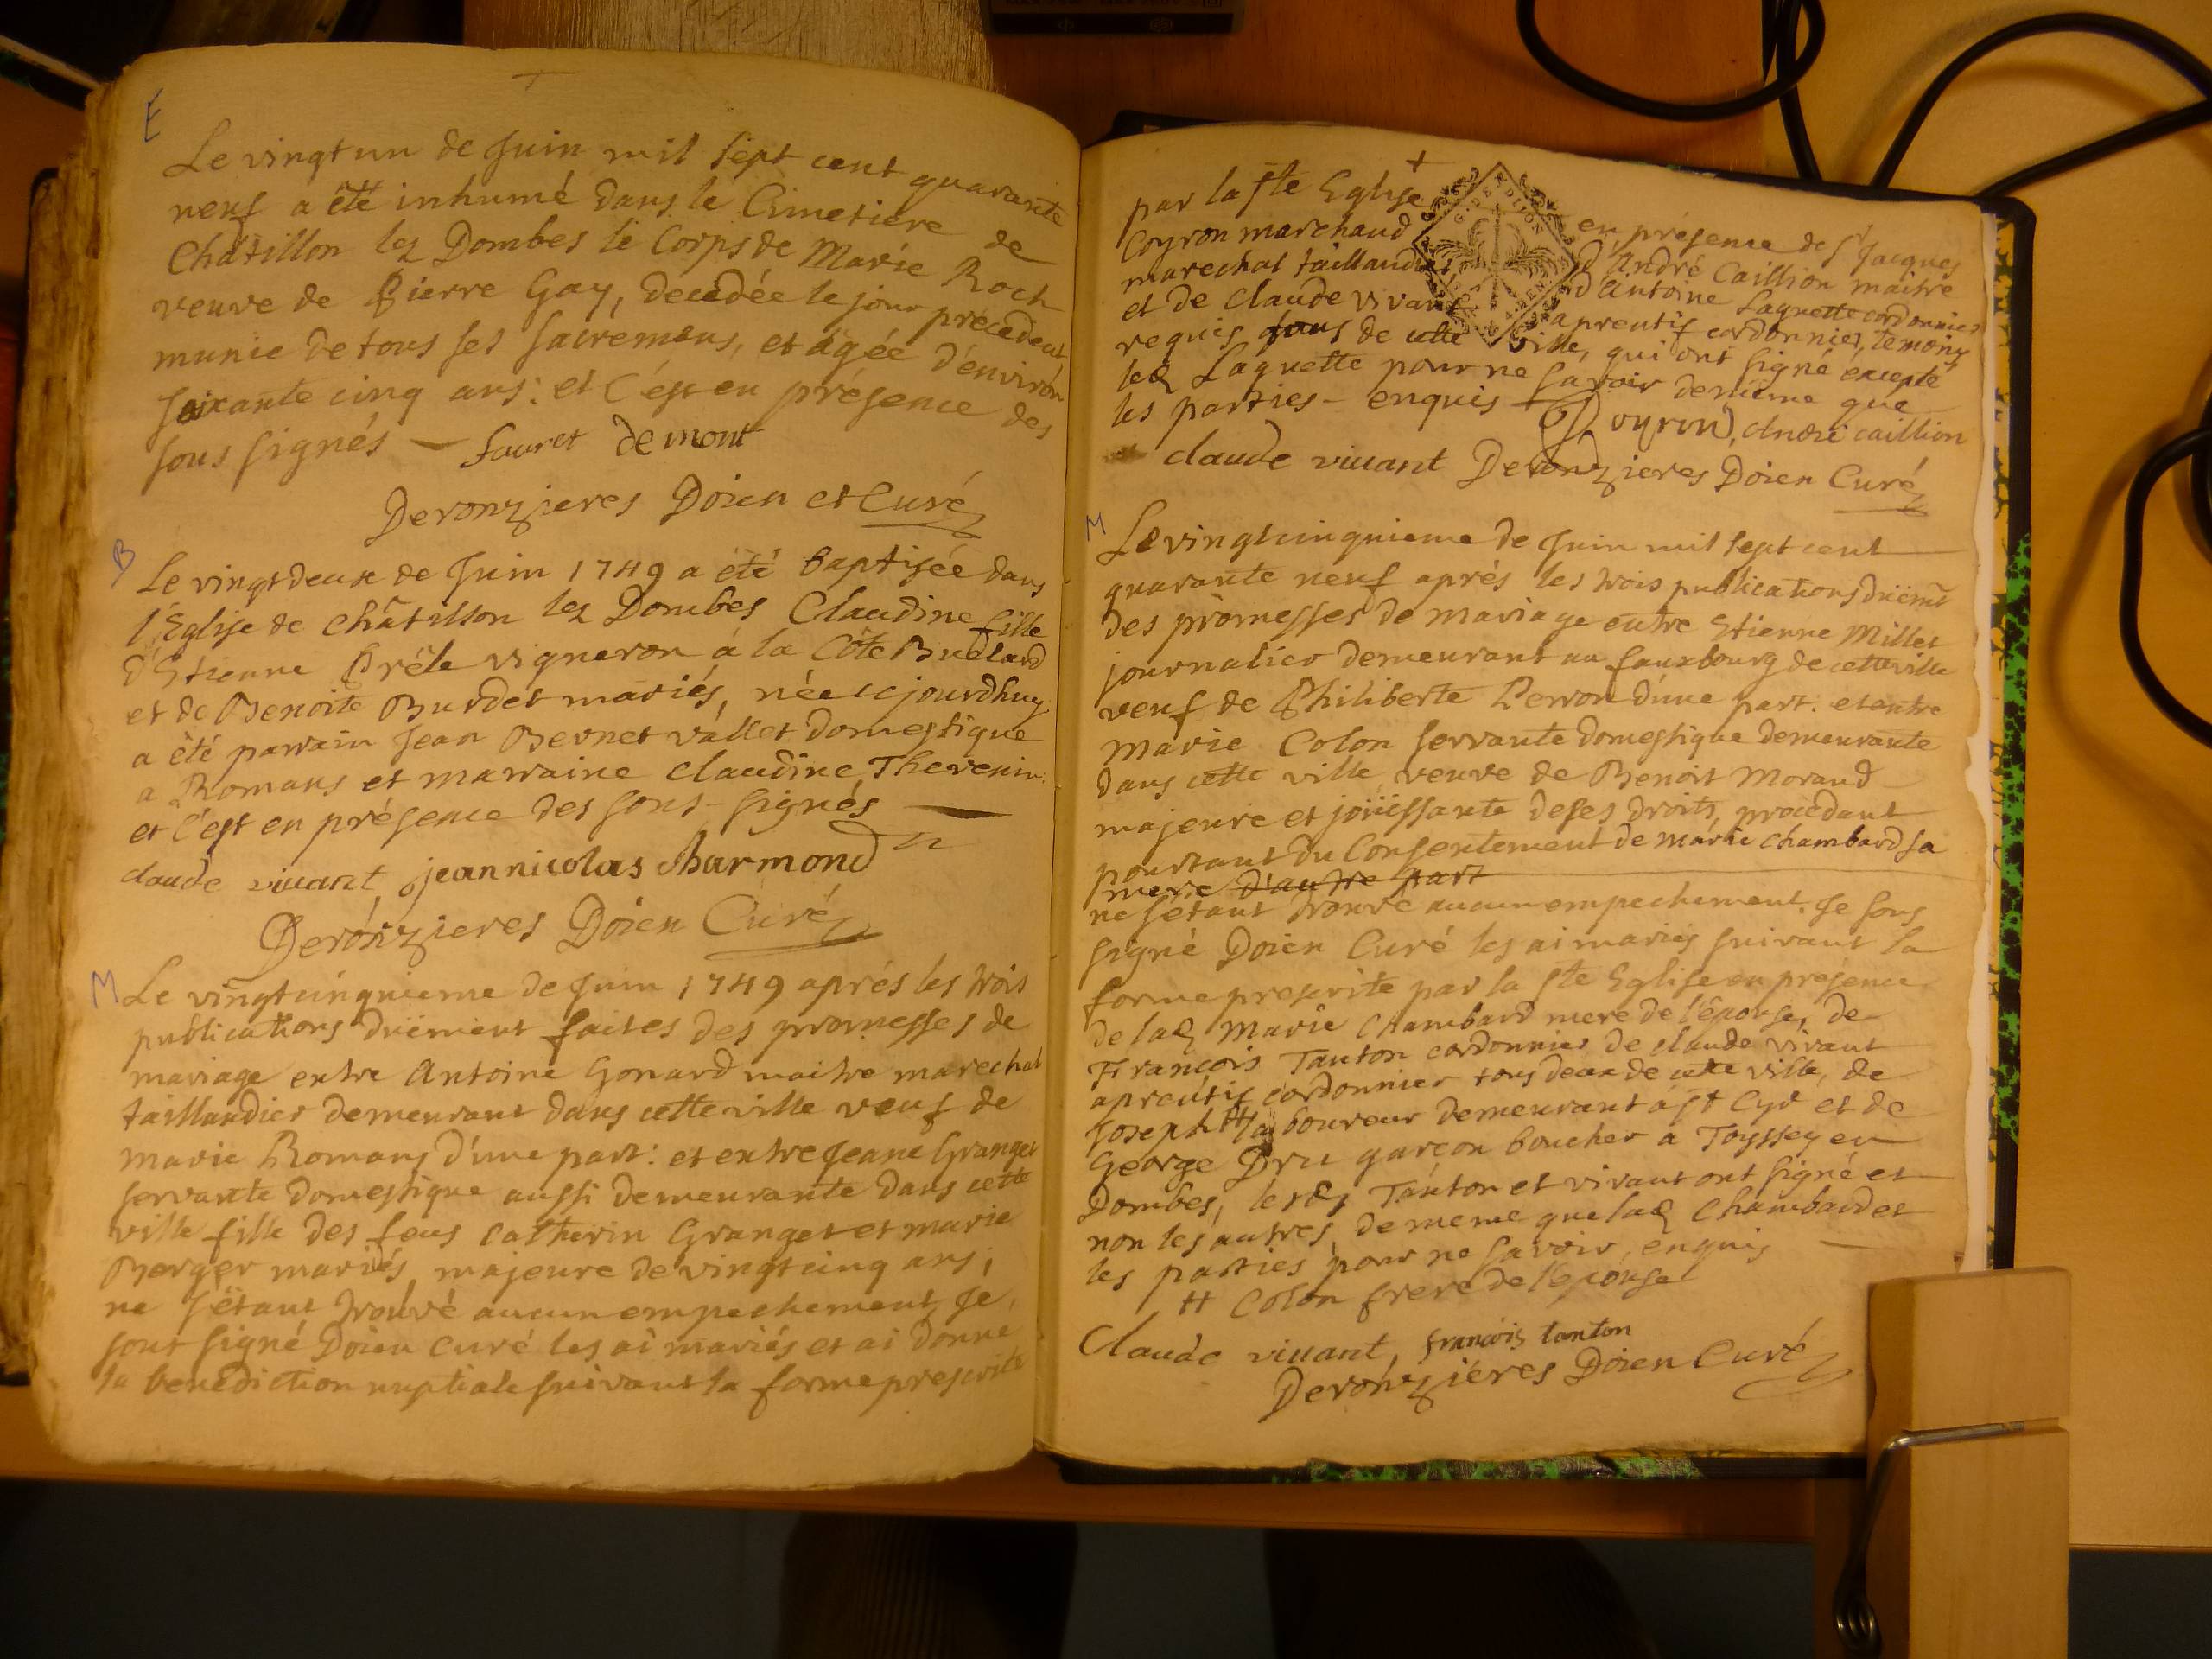 E
Le vingt un de Juin mil sept cent quarante
neuf a été inhumé dans le Cimetiere de
Châtillon lez Dombes le Corps de Marie Roch
veuve de Pierre Gay, decedée le jour précedent
munie de tous ses sacremens, et âgée d'environ
soixante cinq ans: et c'est en présence des
sous signés — favret demont
Deronzieres Doien et Curé
B
Le vingt deux de Juin 1749 a été baptisée dans
l'Eglise de Châtillon lez Dombes Claudine fille
d'Etienne Brêle vigneron à la Côte Buelard
et de Benoite Burdet mariés, née ce jourdhuy
a été parrain Jean Bernet vallet domestique
a Romans et marraine Claudine Thevenin
et c'est en présence des sous-signés
claude viuant, jean nicolas Charmond
Deronzieres Doien Curé
M
Le vingt cinquieme de Juin 1749 aprés les trois
publications düement faites des promesses de
mariage entre Antoine Gonard maitre marechal
taillandier demeurant dans cette ville veuf de
marie Romans d'une part: et entre Jeane Granget
servante domestique aussi demeurante dans cette
ville fille des feus Catherin Granget et marie
Berger mariés, majeure de vingt cinq ans,
ne s'étant trouvé aucun empechement, Je
sous signé Doien Curé les ai mariés et ai donné
la benediction nuptiale suivant la forme prescrite
par la Ste Eglise en présence de Sr Jacques
Coyron marchand d'André Caillion maitre
marechal taillandier d'Antoine Laquette cordonnier
et de claude vivant aprentif cordonnier, temoins
requis tous de cette ville, qui ont signé excepté
led Laquette pour ne savoir de même que
les parties - enquis Coyron, André caillion
claude viuant Deronzieres Doien Curé
M
Le vingt cinquieme de Juin mil sept cent
quarante neuf aprés les trois publications düemt
des promesses de mariage entre Etienne Millet
journalier demeurant au fauxbourg de cette ville
veuf de Philiberte Perron d'une part. et entre
marie Colon servante domestique demeurante
dans cette ville veuve de Benoit Morand
majeure et joüissante de ses droits, procédant
pourtant du Consentement de marie chambard sa
mere d'autre part
ne s'etant trouvé aucun empechement. Je sous
signé Doien Curé les ai mariés suivant la
forme prescrite par la Ste Eglise en présence
de lad Marie Chambard mere de l'épouse, de
François Tanton cordonnier de claude vivant
aprentif cordonnier tous deux de cette ville, de
Joseph # laboureur demeurant à St Cyr et de
George Dru garçon boucher a Toyssey en
Dombes, lesds Tanton et vivant ont signé et
non les autres, de meme que lad Chambard et
les parties pour ne savoir, enquis
# Colon frere de l'épouse
Claude viuant, françois tanton
Deronziéres Doien Curé